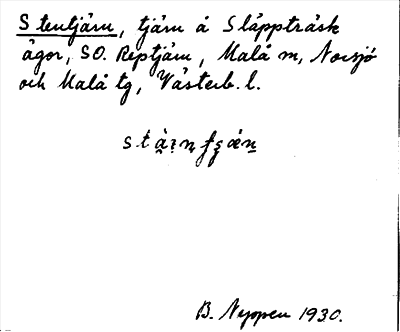 Stentjärn, tjärn å Släppträsk
ägor, SO. Reptjärn, Malå m, Norsjö
och Malå tg, Västerb. l.
B. Nyppen 1930.